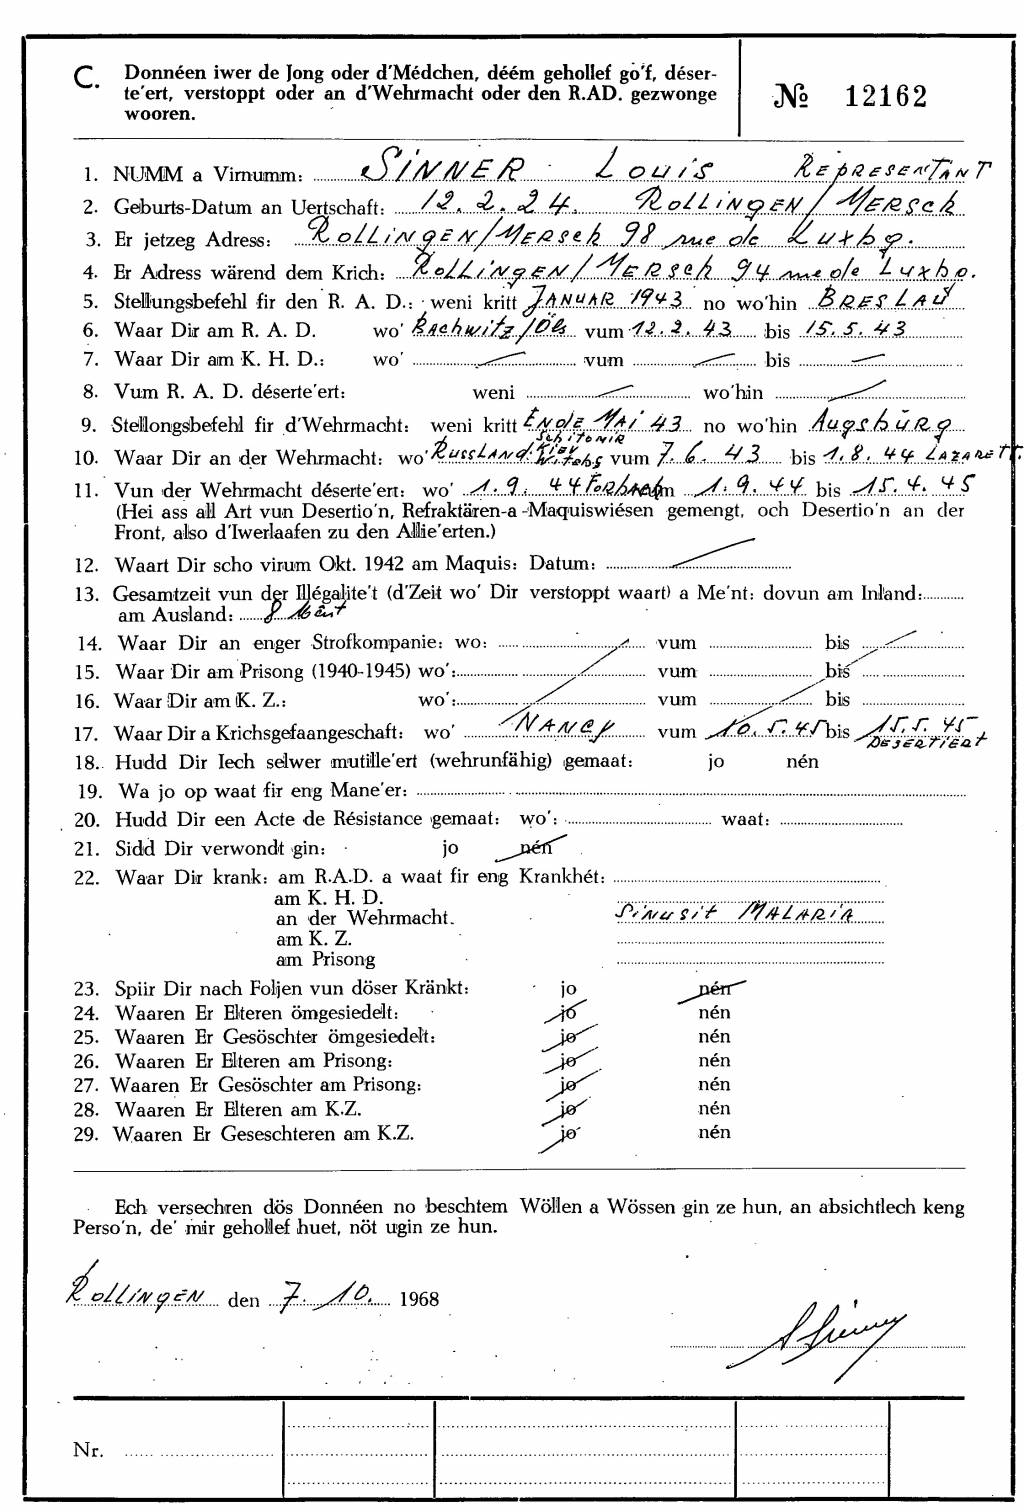 C. Donnéen iwer de Jong oder d'Médchen, déém gehollef go'f, déser-
te'ert, verstoppt oder an d'Wehrmacht oder den R.AD. gezwonge
wooren.
№ 12162
1. NUMM a Virnumm: SINNER LOUIS REPRESENTANT
2. Geburts-Datum an Uertschaft: 12.2.24. ROLLINGEN/MERSCH
3. Er jetzeg Adress: ROLLINGEN/MERSCH 98 rue de LUXBG.
4. Er Adress wärend dem Krich: ROLLINGEN/MERSCH 94 rue de LUXBG.
5. Stellungsbefehl fir den R. A. D.: weni kritt JANUAR 1943 no wo'hin BRESLAU
6. Waar Dir am R. A. D. wo' Rachwitz/Öls vum 12.2.43 bis 15.5.43
7. Waar Dir am K. H. D.: wo' — vum — bis —
8. Vum R. A. D. déserte'ert: weni — wo'hin —
9. Stellongsbefehl fir d'Wehrmacht: weni kritt ENDE MAI 43 no wo'hin AUGSBURG
SCHITOMIR
KIEV
10. Waar Dir an der Wehrmacht: wo' RUSSLAND: WITEBS vum 7.6.43 bis 1.8.44 LAZARETT.
11. Vun der Wehrmacht déserte'ert: wo' 1.9.44 FORBACH vum 1.9.44 bis 15.4.45
(Hei ass all Art vun Desertio'n, Refraktären-a-Maquiswiésen gemengt, och Desertio'n an der
Front, also d'Iwerlaafen zu den Allie'erten.)
12. Waart Dir scho virum Okt. 1942 am Maquis: Datum: —
13. Gesamtzeit vun der Illégalite't (d'Zeit wo' Dir verstoppt waart) a Me'nt: dovun am Inland:
am Ausland: 8 Mént
14. Waar Dir an enger Strofkompanie: wo: vum bis
15. Waar Dir am Prisong (1940-1945) wo': vum bis
16. Waar Dir am K. Z.: wo': vum bis
17. Waar Dir a Krichsgefaangeschaft: wo' NANCY vum 10.5.45 bis 15.5.45
DESERTIERT
18. Hudd Dir Iech selwer mutille'ert (wehrunfähig) gemaat: jo nén
19. Wa jo op waat fir eng Mane'er:
20. Hudd Dir een Acte de Résistance gemaat: wo': waat:
21. Sidd Dir verwondt gin: jo nén
22. Waar Dir krank: am R.A.D. a waat fir eng Krankhét:
am K. H. D.
an der Wehrmacht. SINUSIT MALARIA
am K. Z.
am Prisong
23. Spiir Dir nach Foljen vun döser Kränkt: jo nén
24. Waaren Er Elteren ömgesiedelt: jo nén
25. Waaren Er Gesöschter ömgesiedelt: jo nén
26. Waaren Er Elteren am Prisong: jo nén
27. Waaren Er Gesöschter am Prisong: jo nén
28. Waaren Er Elteren am K.Z. jo nén
29. Waaren Er Geseschteren am K.Z. jo nén
Ech versechren dös Donnéen no beschtem Wöllen a Wössen gin ze hun, an absichtlech keng
Perso'n, de' mir gehollef huet, nöt ugin ze hun.
ROLLINGEN den 7. 10. 1968
Nr.